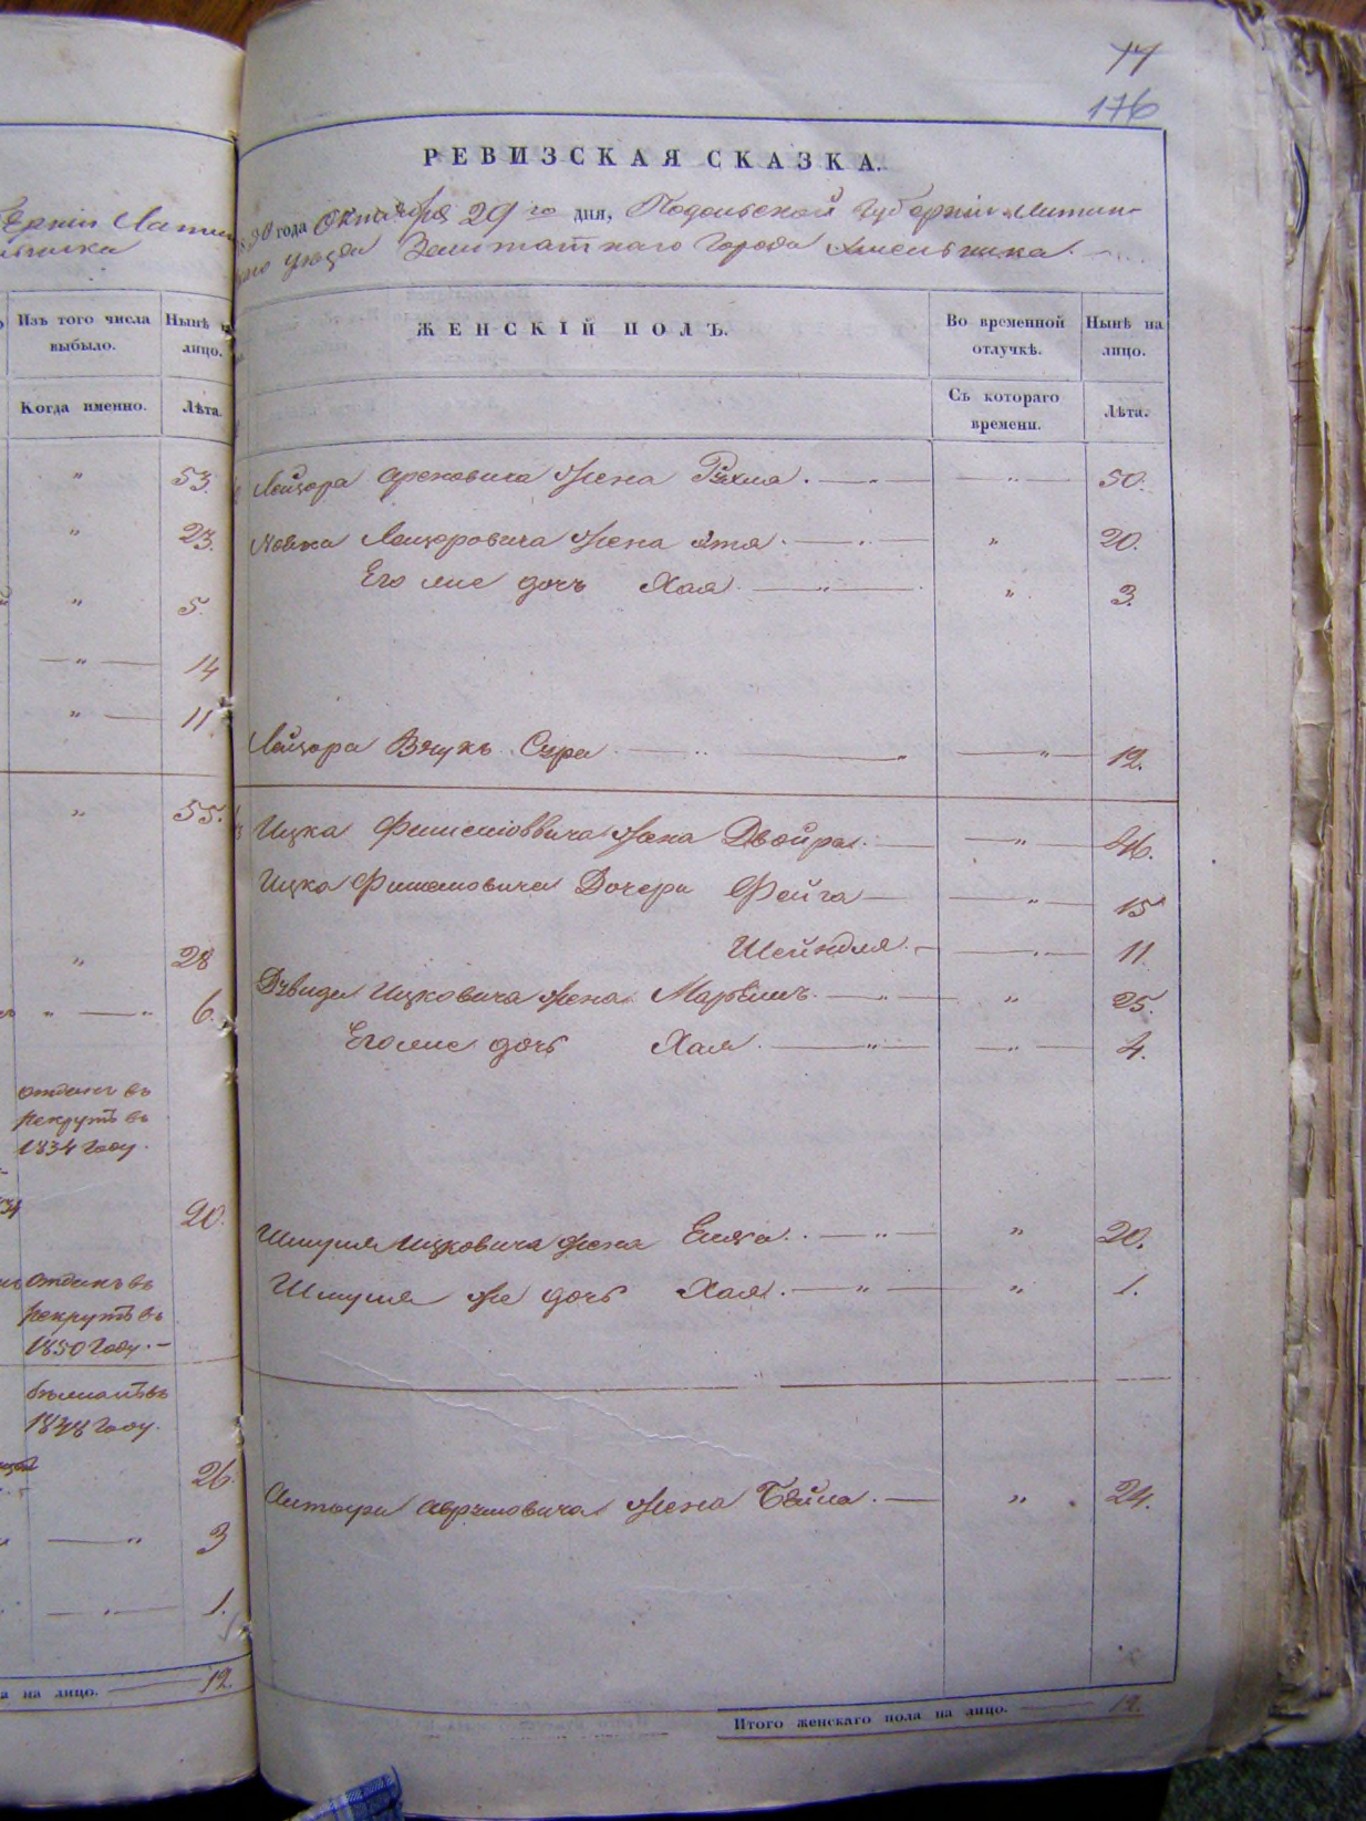 17
176
РЕВИЗСКАЯ СКАЗКА.
года Октября 29 го дня, Подольской Губерніи Литин-
уезда Заштатнаго Города Хмельника.
ЖЕНСКІЙ ПОЛЪ.
Во временной отлучкѣ.
Нынѣ на лицо.
Съ котораго времени.
Лѣта.
Лейзора жена Рухля. " 50.
Лейзоровича жена Этя. " 20.
Его же дочь Хая. " 3.
Лейзора Внукъ Сура " 12.
Ицка жена Двойра. " 46.
Ицка Дочери Фейга " 15
Шейндля. " 11.
Ицковича жена Марьямъ. " 25.
Его же дочь Хая. " 4.
Шмуля Ицковича жена " 20.
Шмуля же дочь Хая. " 1.
жена Бейла. " 24.
Итого женскаго пола на лицо. 12.
Изъ того числа выбыло.
Нынѣ
лицо.
Когда именно.
Лѣта.
" 53.
" 23.
" 5.
" 14
" 11
" 55.
" 28
" 6.
отданъ въ
рекруты въ
1834 году.
20.
отданъ въ
рекруты въ
1850 году.
1848 году.
26.
" 3
" 1.
на лицо. 12.